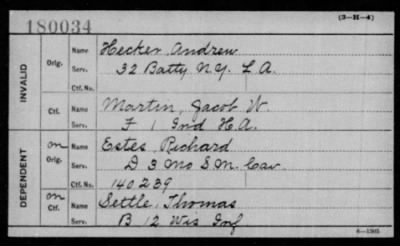 180034
(3-H-4)
INVALID
Orig.
Name Hecker, Andrew
Serv. 32 Batty N.Y. L A.
Ctf. No.
Ctf.
Name Martin, Jacob W.
Serv. F 1 Ind H.A.
DEPENDENT
on
Orig.
Name Estes, Richard
Serv. D 3 Mo S M. Cav
Ctf. No. 140239
on
Ctf.
Name Settle, Thomas
Serv. B 12 Wis Inf